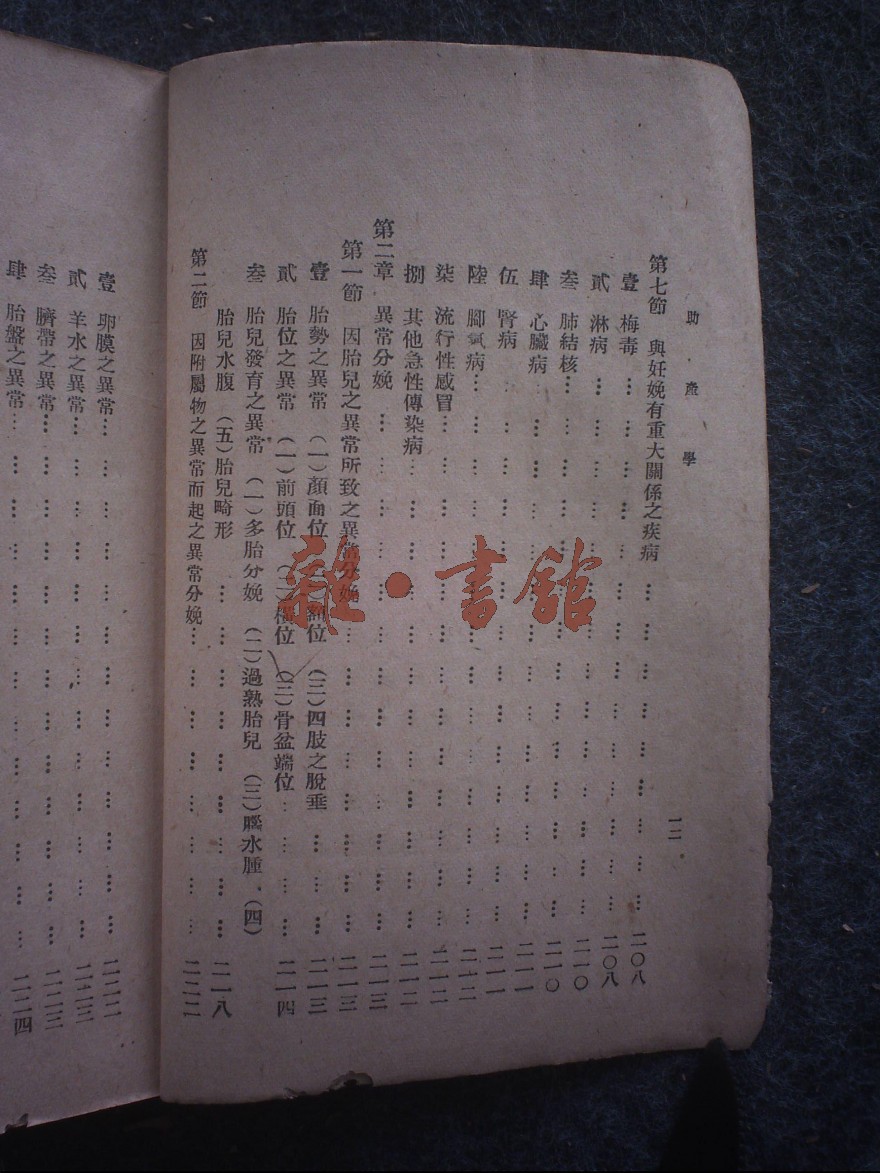 助產學
一二
第七節 與妊娩有重大關係之疾病……二〇八
壹 梅毒……二〇八
貳 淋病……二一〇
叁 肺結核……二一〇
肆 心臟病……二一一
伍 腎病……二一一
陸 腳氣病……二一二
柒 流行性感冒……二一二
捌 其他急性傳染病……二一二
第二章 異常分娩……二一三
第一節 因胎兒之異常所致之異常分娩……二一三
壹 胎勢之異常 (一)顏面位 (二)額位 (三)四肢之脫垂……二一三
貳 胎位之異常 (一)前頭位 (二)橫位 (三)骨盆端位……二一四
叁 胎兒發育之異常 (一)多胎分娩 (二)過熟胎兒 (三)腦水腫 (四)
胎兒水腹 (五)胎兒畸形……二一八
第二節 因附屬物之異常而起之異常分娩……二二二
壹 卵膜之異常……二二二
貳 羊水之異常……二二三
叁 臍帶之異常……二二三
肆 胎盤之異常……二二四
雜·書館